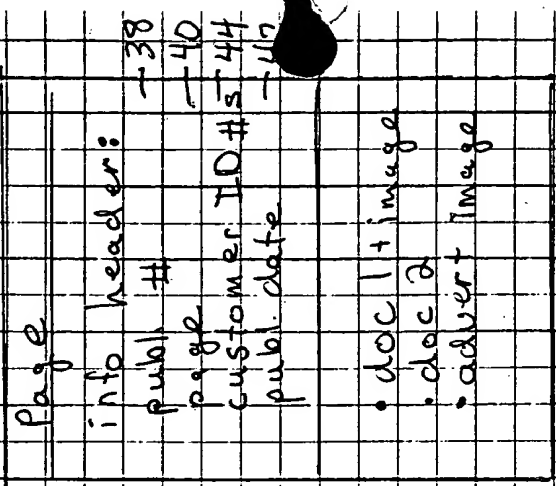 Page
info header:
publ. # —38
page —40
customer ID #s —44
publ. date
• doc 1 + image
• doc 2
• advert image